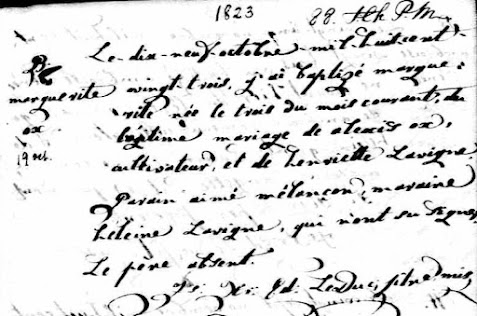 1823
Le dix-neuf octobre mil huit cent
marguerite
ox
19 oct.
vingt trois, j'ai baptizé margue-
rite née le trois du mois courant, du
légitime mariage de alexis ox,
cultivateur, et de henriette Lavigne.
Parain aimé mélançon, maraine
héleine Lavigne, qui n'ont su signer
Le pere absent.
Ls. Leduc, ptre mis.